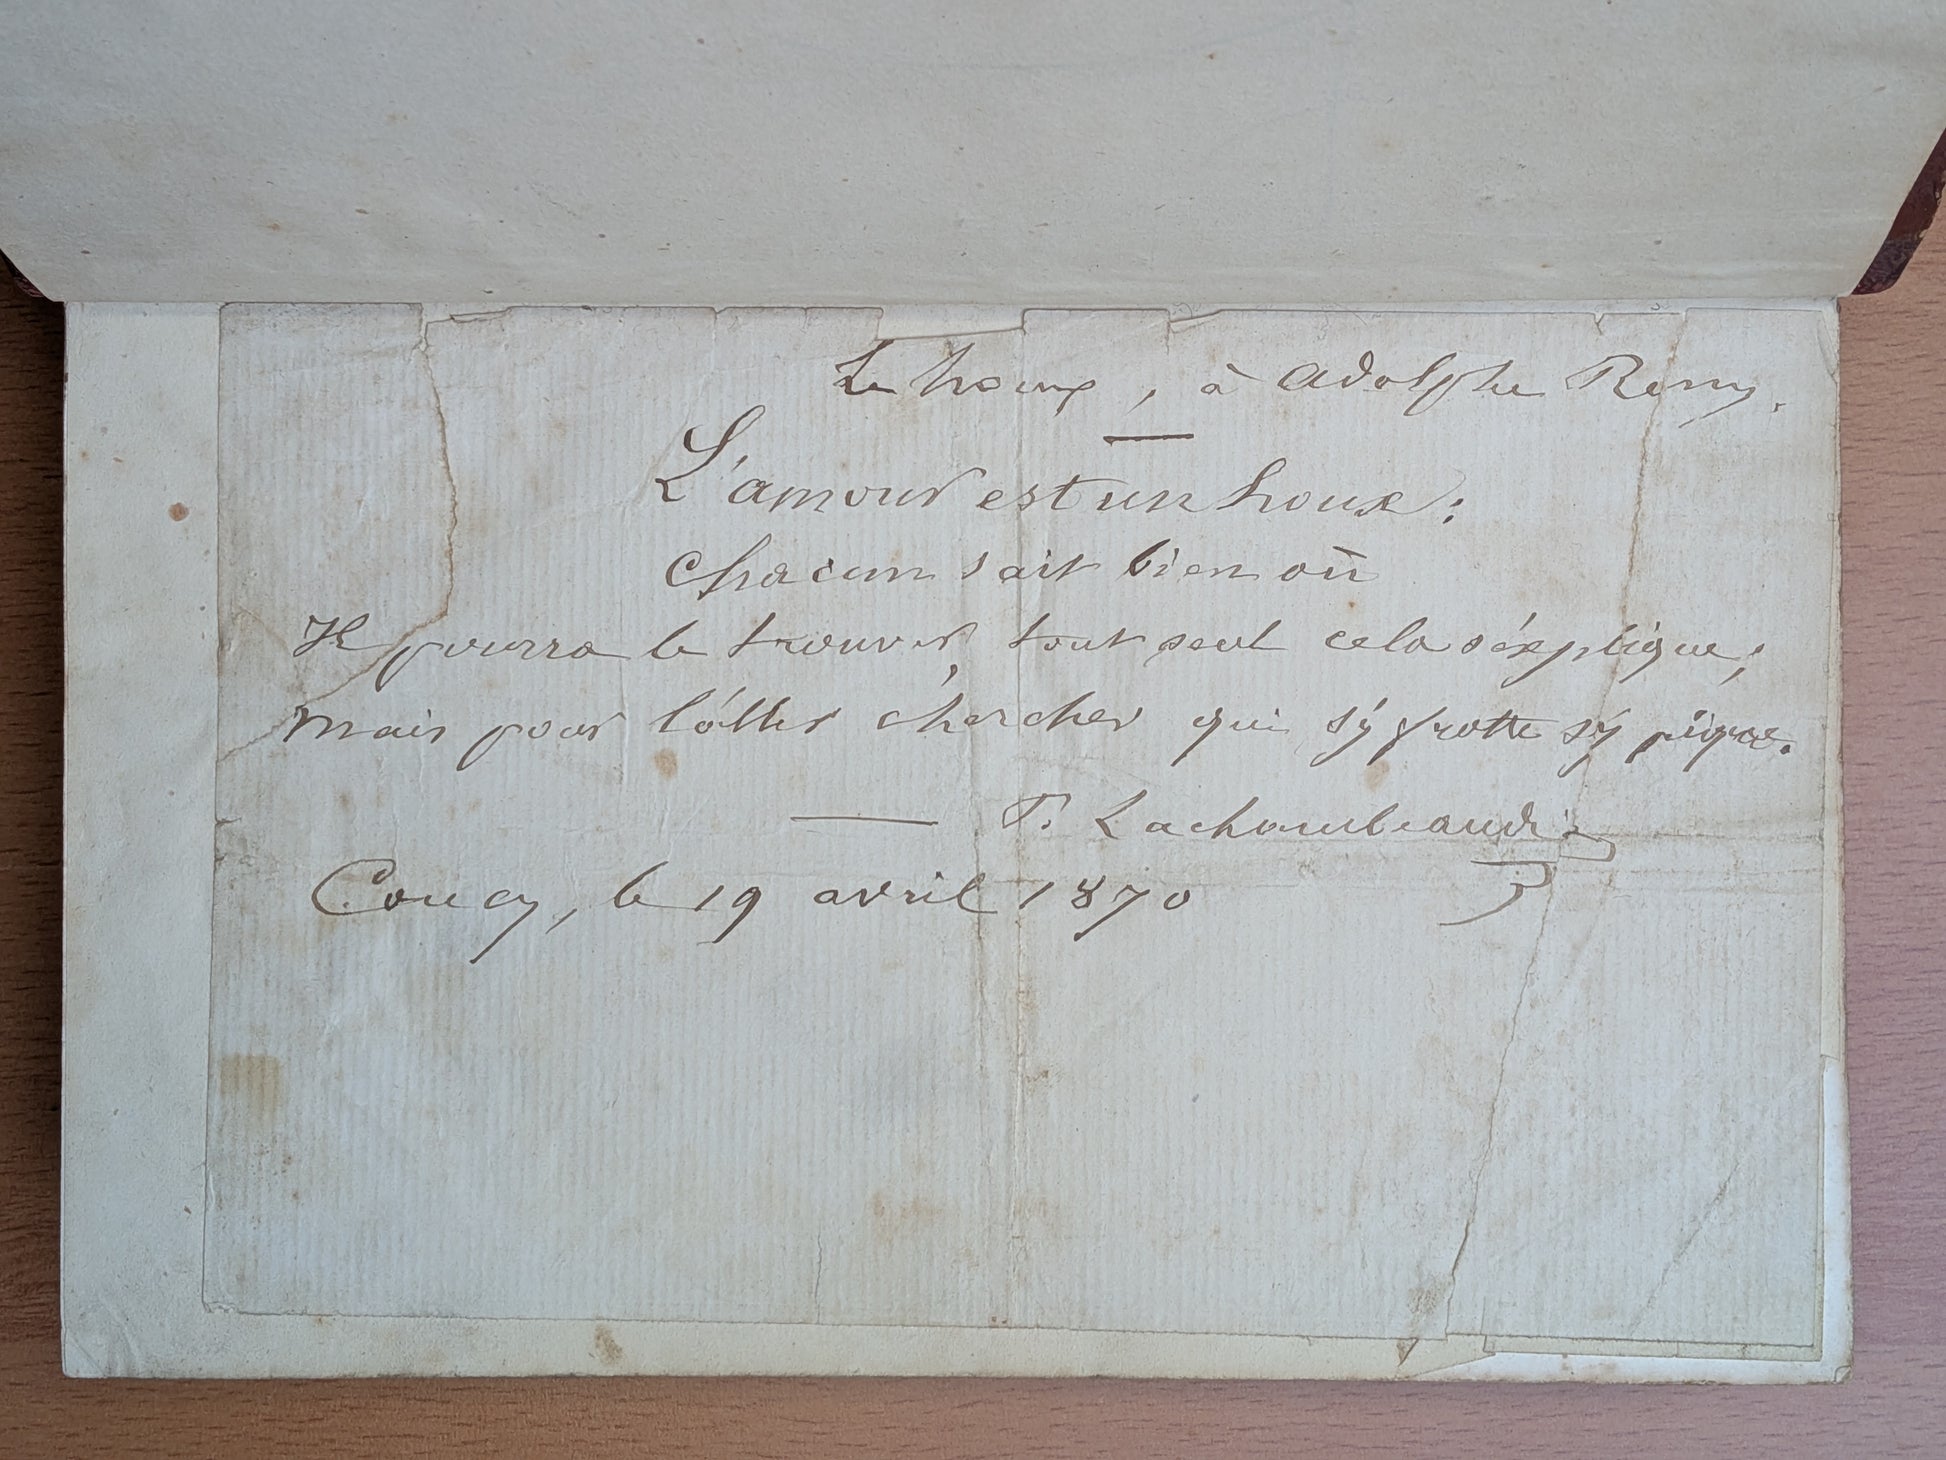 Le houx, à Adolphe Remy.
L'amour est un houx:
Chacun sait bien où
Il pourra le trouver, tout seul cela s'explique;
Mais pour l'aller chercher qui s'y frotte s'y pique.
P. Lachambeaudie
Coucy, le 19 avril 1870